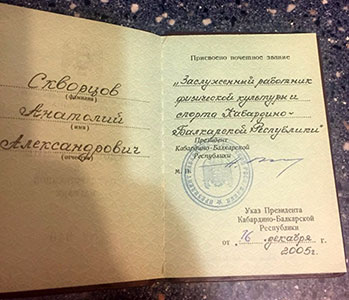 Скворцов
(фамилия)
Анатолий
(имя)
Александрович
(отчество)
Присвоено почетное звание
„Заслуженный работник
физической культуры и
спорта Кабардино-
Балкарской Республики"
Президент
Кабардино-Балкарской
Республики
М.П.
Указ Президента
Кабардино-Балкарской
Республики
от „16" декабря г.
2005г.